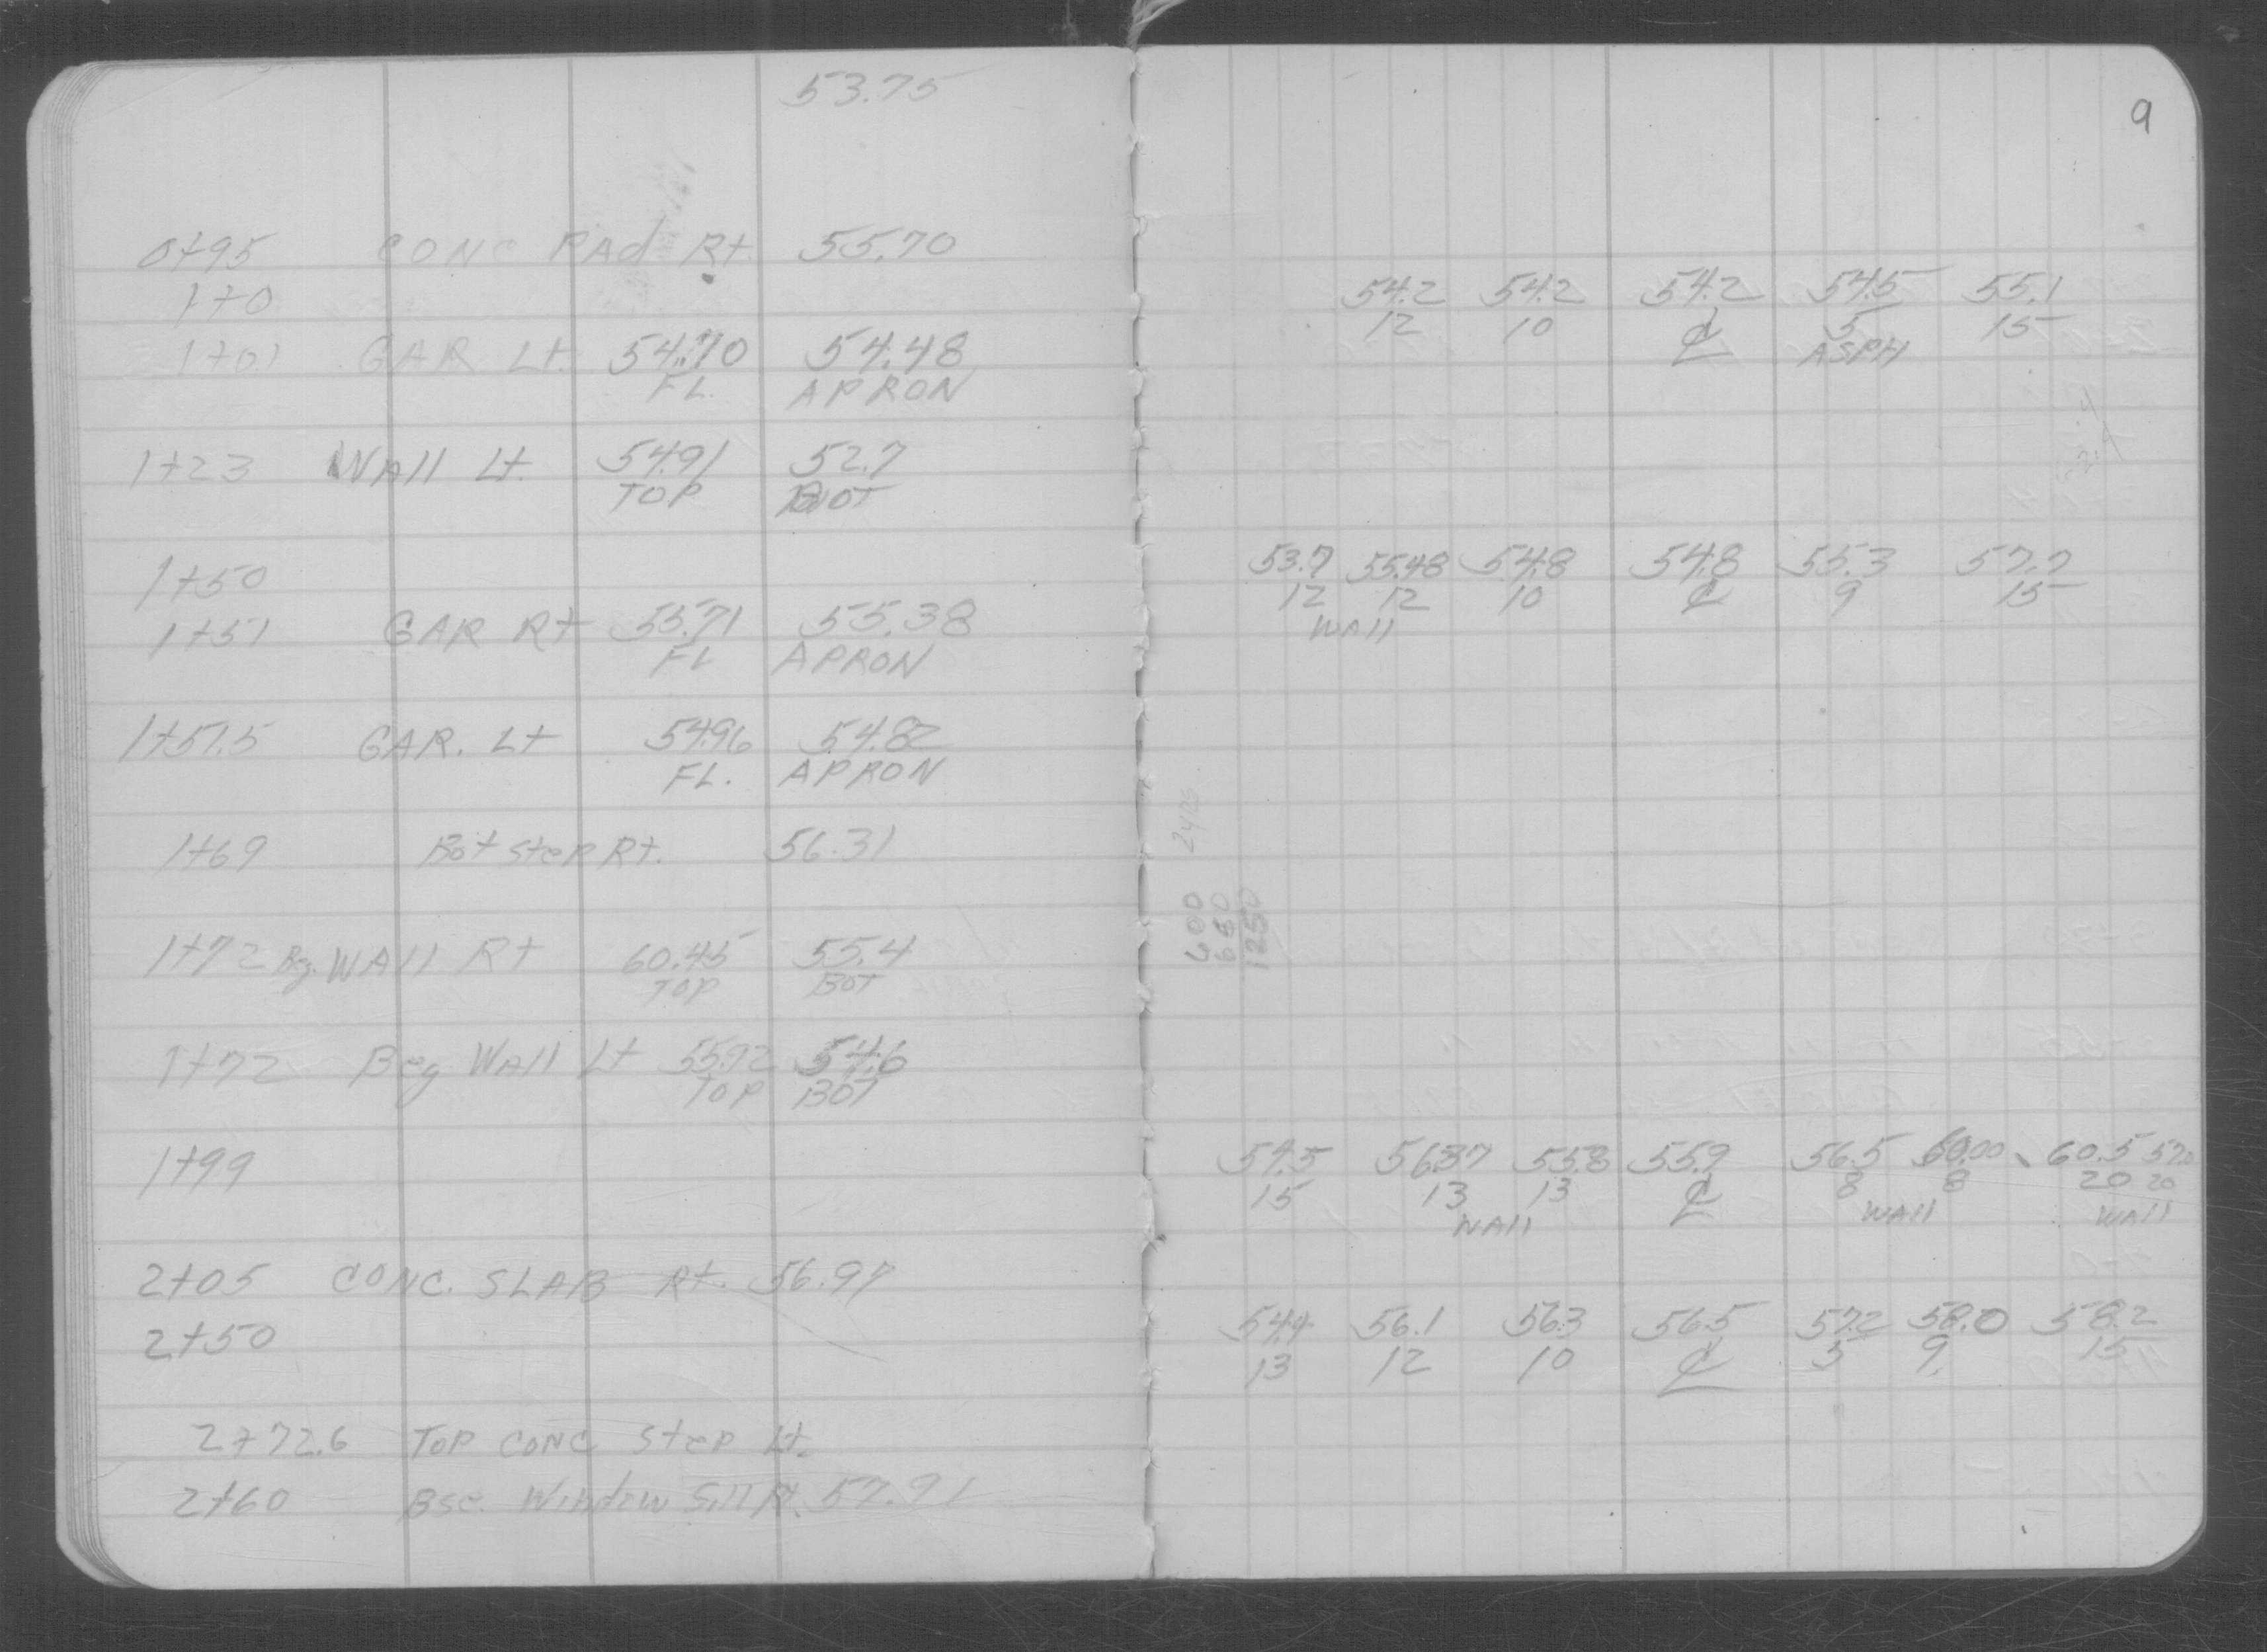 53.75
0+95 CONC PAd Rt. 55.70
1+0
1+01 GAR Lt. 54.70 54.48
FL. APRON
1+23 WAll Lt. 54.91 52.7
TOP BOT
1+50
1+51 GAR Rt 55.71 55.38
FL APRON
1+51.5 GAR. Lt 54.96 54.82
FL. APRON
1+69 Bot Step Rt. 56.31
1+72 Bg. WAll Rt 60.45 55.4
TOP BOT
1+72 Beg WAll Lt 55.92 54.6
TOP BOT
1+99
2+05 CONC. SLAB Rt. 56.97
2+50
2+72.6 TOP CONC Step Lt.
2+60 Bse. Window Sill Rt. 57.91
9
54.2 54.2 54.2 54.5 55.1
12 10 ℄ 5 15
ASPH
53.7 55.48 54.8 54.8 55.3 57.7
12 12 10 ℄ 9 15
WAll
600
650
1250
54.5 56.87 55.8 55.9 56.5 60.00 60.5
15 13 13 ℄ 8 8 20 20
WAll WAll WAll
54.4 56.1 56.3 56.5 57.2 58.0 58.2
13 12 10 ℄ 5 9 15